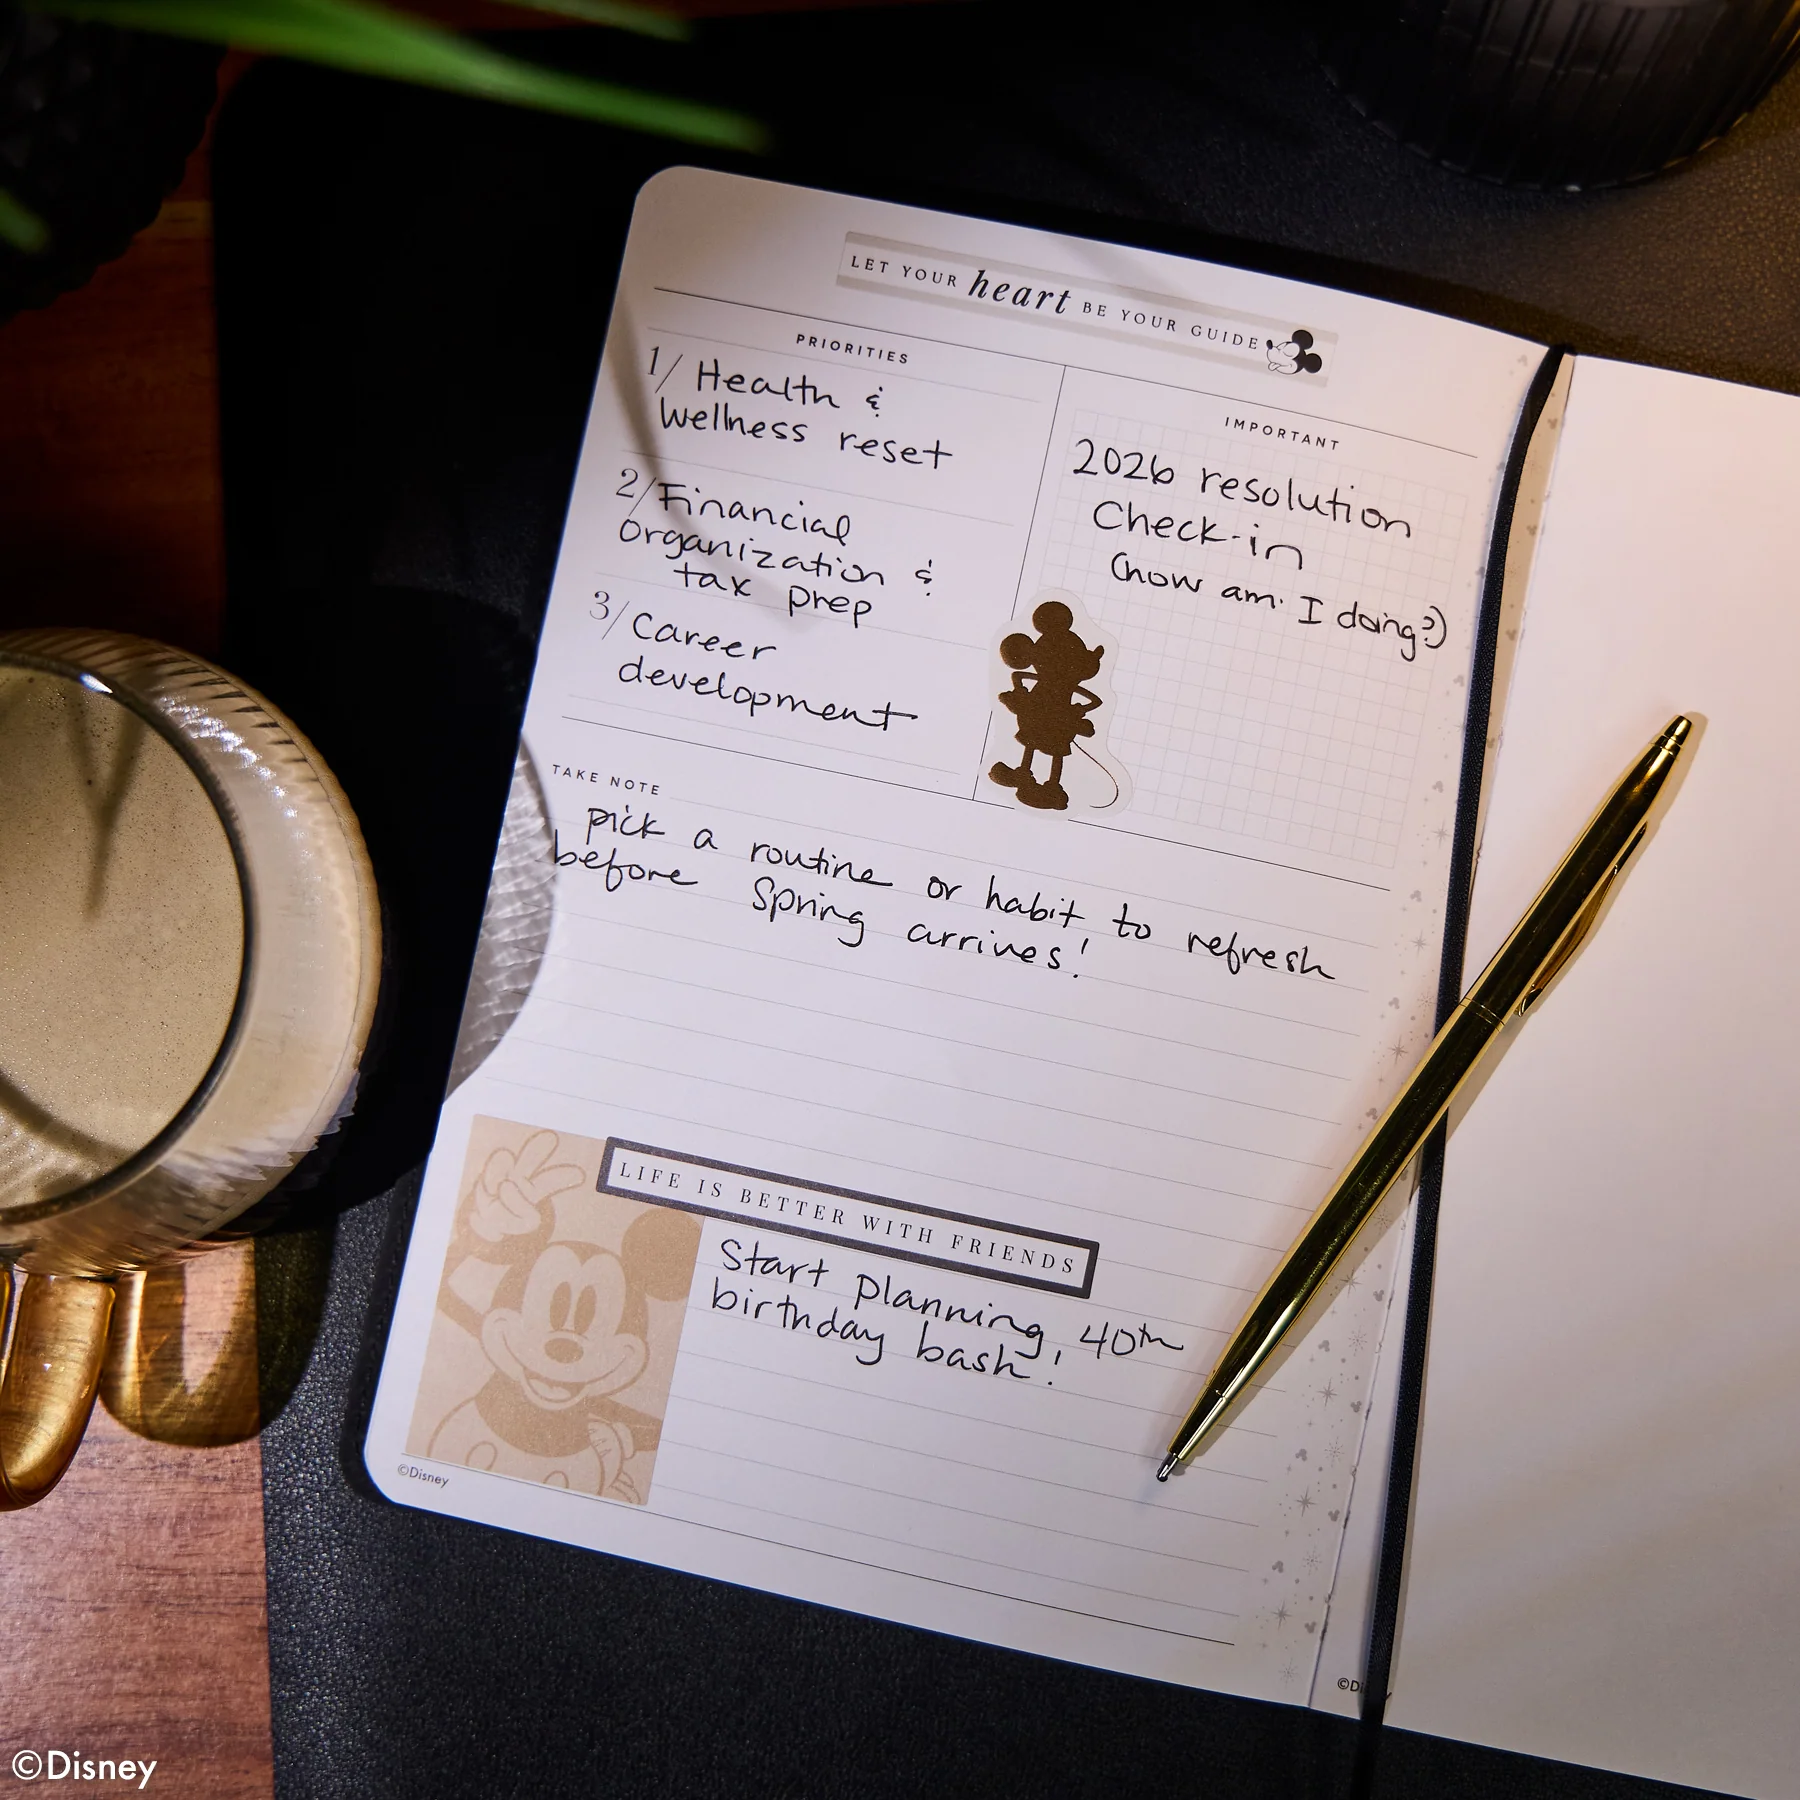 LET YOUR heart BE YOUR GUIDE
PRIORITIES
1/ Health &
Wellness reset
2/ Financial
Organization &
tax prep
3/ Career
development
IMPORTANT
2026 resolution
Check-in
(how am I doing?)
TAKE NOTE
pick a routine or habit to refresh
before Spring arrives!
LIFE IS BETTER WITH FRIENDS
Start planning 40th
birthday bash!
©Disney
©Disney
©Disney